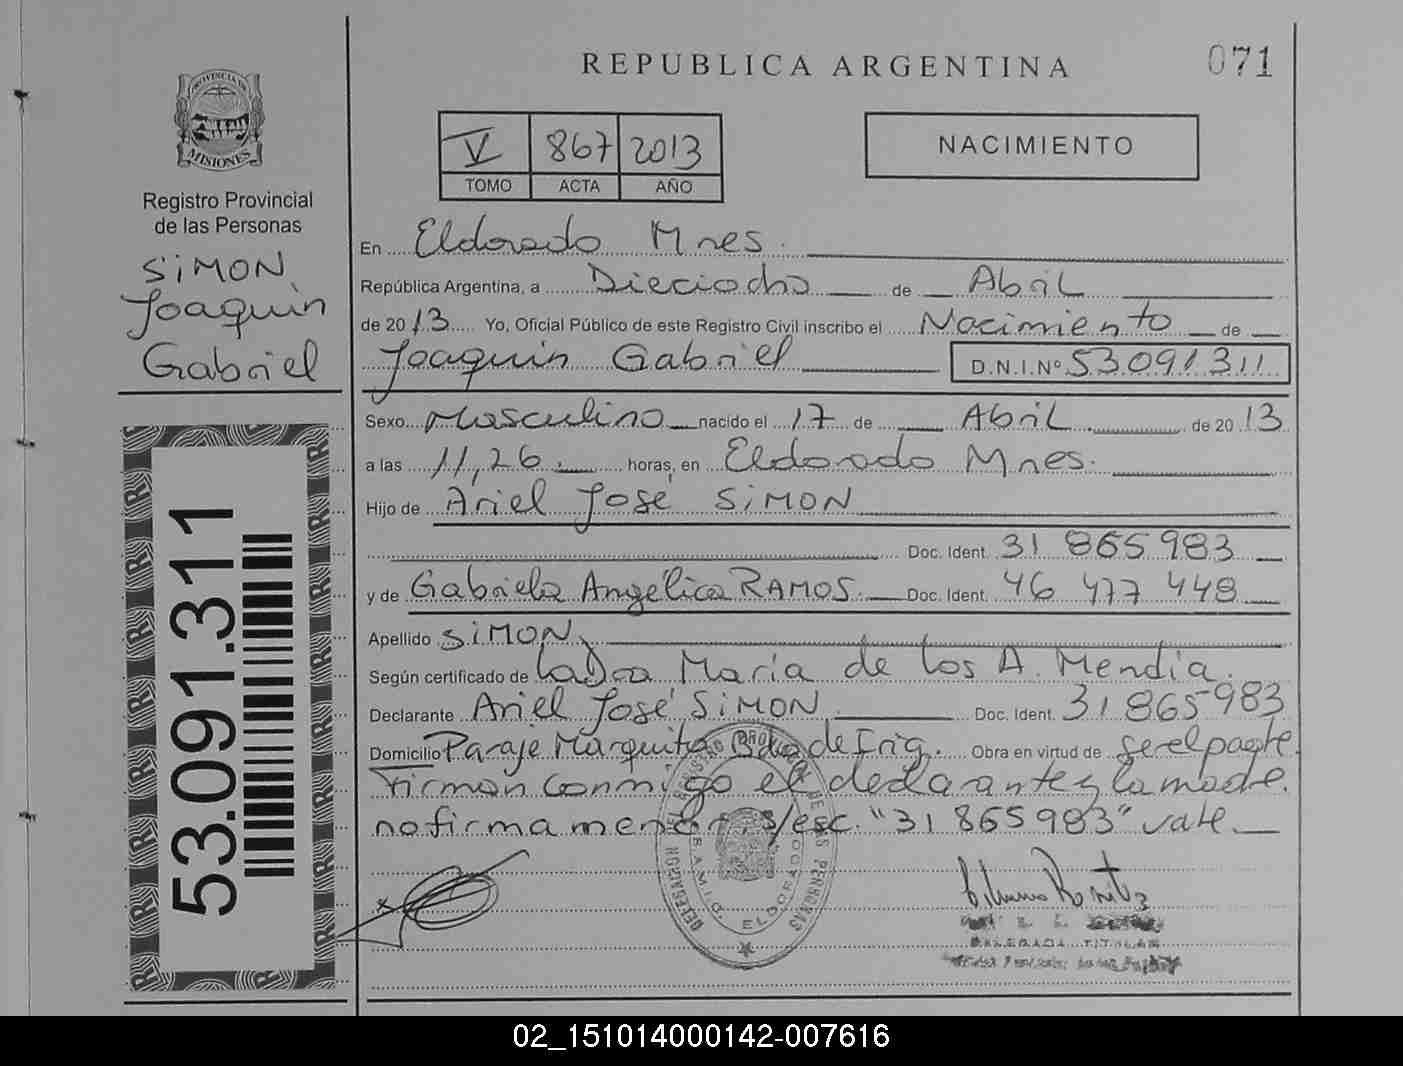 REPUBLICA ARGENTINA
071
PROVINCIA DE MISIONES
Registro Provincial
de las Personas
SIMON
Joaquín
Gabriel
V 867 2013
TOMO ACTA AÑO
NACIMIENTO
En Eldorado Mnes.
República Argentina, a Dieciocho de Abril
de 2013 Yo, Oficial Público de este Registro Civil inscribo el Nacimiento de
Joaquín Gabriel D.N.I. Nº 53.091.311
Sexo Masculino nacido el 17 de Abril de 2013
a las 11,26 horas, en Eldorado Mnes.
Hijo de Ariel José SIMON
Doc. Ident. 31 865 983
y de Gabriela Angélica RAMOS Doc. Ident. 46 477 448
Apellido SIMON
Según certificado de la Dra María de los A. Mendía.
Declarante Ariel José SIMON Doc. Ident. 31 865 983
Domicilio Paraje Marquita Bdo de Irig. Obra en virtud de ser el padre
firman conmigo el declarante y la madre
no firma menor s/esc. "31 865 983" vale
53.091.311
DELEGACION DEL REGISTRO PROVINCIAL DE LAS PERSONAS
S.A.M.I.C. ELDORADO
DELEGADA TITULAR
02_151014000142-007616